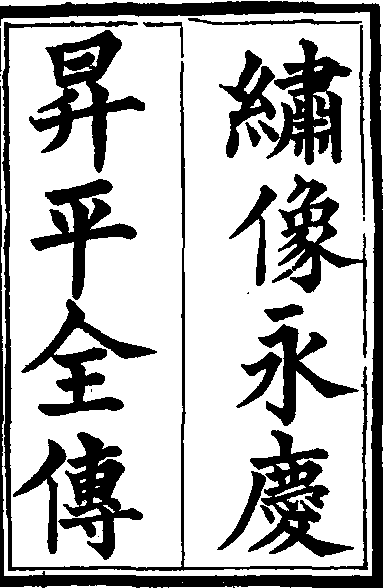 繡像永慶
昇平全傳